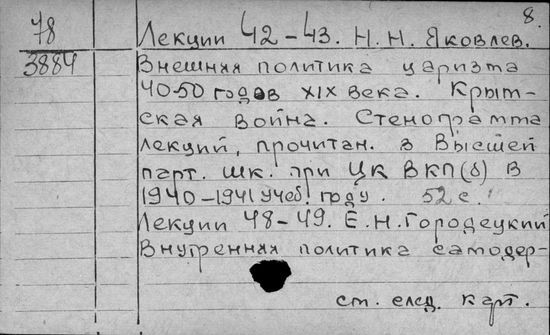 8.
78
3884
Лекции 42-43. Н.Н. Яковлев.
Внешняя политика царизма
40-50 годов XIX века. Крым-
ская война. Стенограмма
лекций, прочитан. в Высшей
парт. шк. при ЦК ВКП(б) в
1940-1941 учеб. году. 52 с.
Лекции 48-49. Е.Н. Городецкий
Внутренняя политика самодер-
см. след. карт.